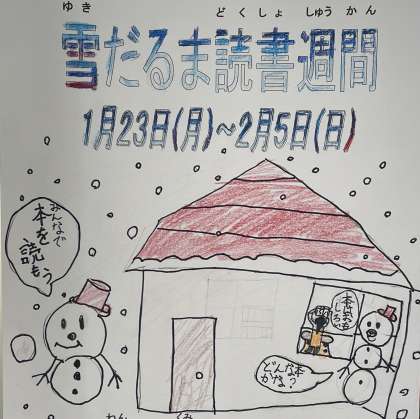 ゆき どくしょ しゅうかん
雪だるま読書週間
1月23日(月)~2月5日(日)
みんなで
本を
読もう
どんな本
かな?
ねん くみ